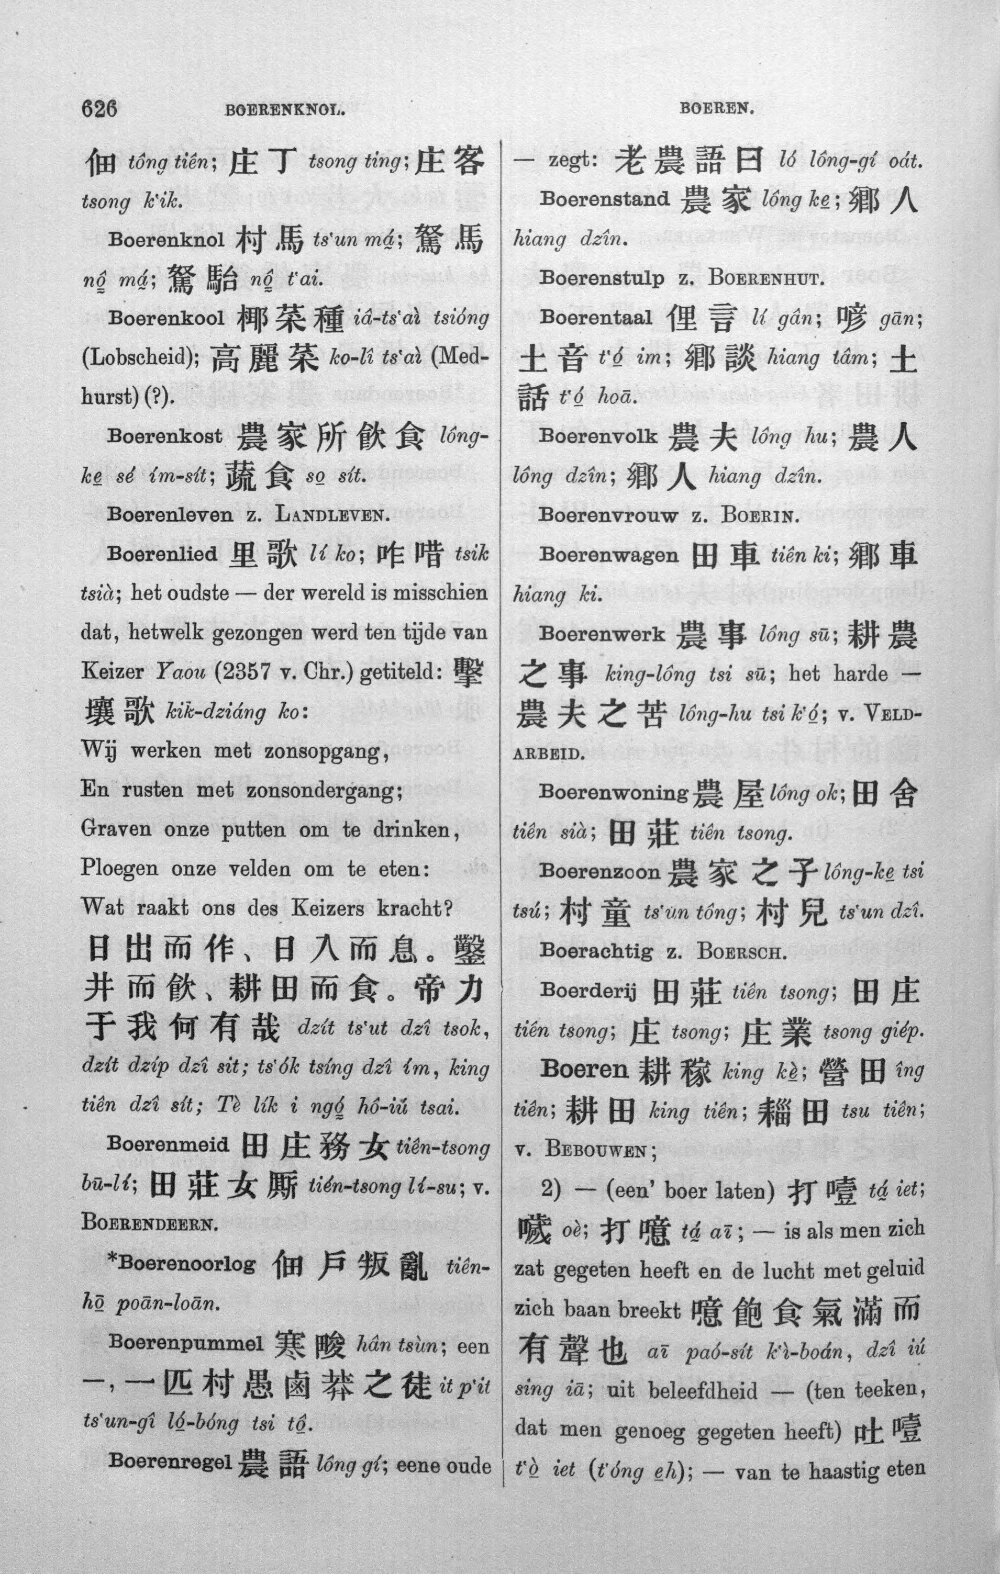 626 BOERENKNOL. BOEREN.
佃 tông tiên; 庄丁 tsong ting; 庄客
tsong k‘ik.
Boerenknol 村馬 ts‘un má̱; 駑馬
nô̱ má̱; 駑駘 nô̱ t‘ai.
Boerenkool 椰菜種 iâ-ts‘aì tsióng
(Lobscheid); 高麗菜 ko-lî ts‘aì (Med-
hurst) (?).
Boerenkost 農家所飲食 lông-
ke̱ sé ím-sít; 蔬食 so̱ sít.
Boerenleven z. LANDLEVEN.
Boerenlied 里歌 lí ko; 咋唶 tsik
tsià; het oudste — der wereld is misschien
dat, hetwelk gezongen werd ten tijde van
Keizer Yaou (2357 v. Chr.) getiteld: 擊
壤歌 kik-dziáng ko:
Wij werken met zonsopgang,
En rusten met zonsondergang;
Graven onze putten om te drinken,
Ploegen onze velden om te eten:
Wat raakt ons des Keizers kracht?
日出而作、日入而息。鑿
井而飲、耕田而食。帝力
于我何有哉 dzít ts‘ut dzî tsok,
dzít dzíp dzî sit; ts‘ók tsíng dzî ím, king
tiên dzî sít; Tè lík i ngó̱ hô-iú tsai.
Boerenmeid 田庄務女 tiên-tsong
bū-lí; 田莊女廝 tiên-tsong lí-su; v.
BOERENDEERN.
*Boerenoorlog 佃戶叛亂 tiên-
hō̱ poān-loān.
Boerenpummel 寒畯 hân tsùn; een
—, 一匹村愚鹵莽之徒 it p‘it
ts‘un-gî ló̱-bóng tsi tô̱.
Boerenregel 農語 lông gí; eene oude
— zegt: 老農語曰 ló lông-gí oát.
Boerenstand 農家 lông ke̱; 鄉人
hiang dzîn.
Boerenstulp z. BOERENHUT.
Boerentaal 俚言 lí gân; 喭 gān;
土音 t‘ó̱ im; 鄉談 hiang tâm; 土
話 t‘ó̱ hoā.
Boerenvolk 農夫 lông hu; 農人
lông dzîn; 鄉人 hiang dzîn.
Boerenvrouw z. BOERIN.
Boerenwagen 田車 tiên ki; 鄉車
hiang ki.
Boerenwerk 農事 lông sū; 耕農
之事 king-lông tsi sū; het harde —
農夫之苦 lông-hu tsi k‘ó̱; v. VELD-
ARBEID.
Boerenwoning 農屋 lông ok; 田舍
tiên sià; 田莊 tiên tsong.
Boerenzoon 農家之子 lông-ke̱ tsi
tsú; 村童 ts‘un tông; 村兒 ts‘un dzî.
Boerachtig z. BOERSCH.
Boerderij 田莊 tiên tsong; 田庄
tiên tsong; 庄 tsong; 庄業 tsong giép.
Boeren 耕稼 king kè̱; 營田 îng
tiên; 耕田 king tiên; 耬田 tsu tiên;
v. BEBOUWEN;
2) — (een’ boer laten) 打噎 tá̱ iet;
噦 oè; 打噫 tá̱ aī; — is als men zich
zat gegeten heeft en de lucht met geluid
zich baan breekt 噫飽食氣滿而
有聲也 aī paó-sít k‘ì-boán, dzî iú
sing iā; uit beleefdheid — (ten teeken,
dat men genoeg gegeten heeft) 吐噎
t‘ò̱ iet (t‘óng e̱h); — van te haastig eten